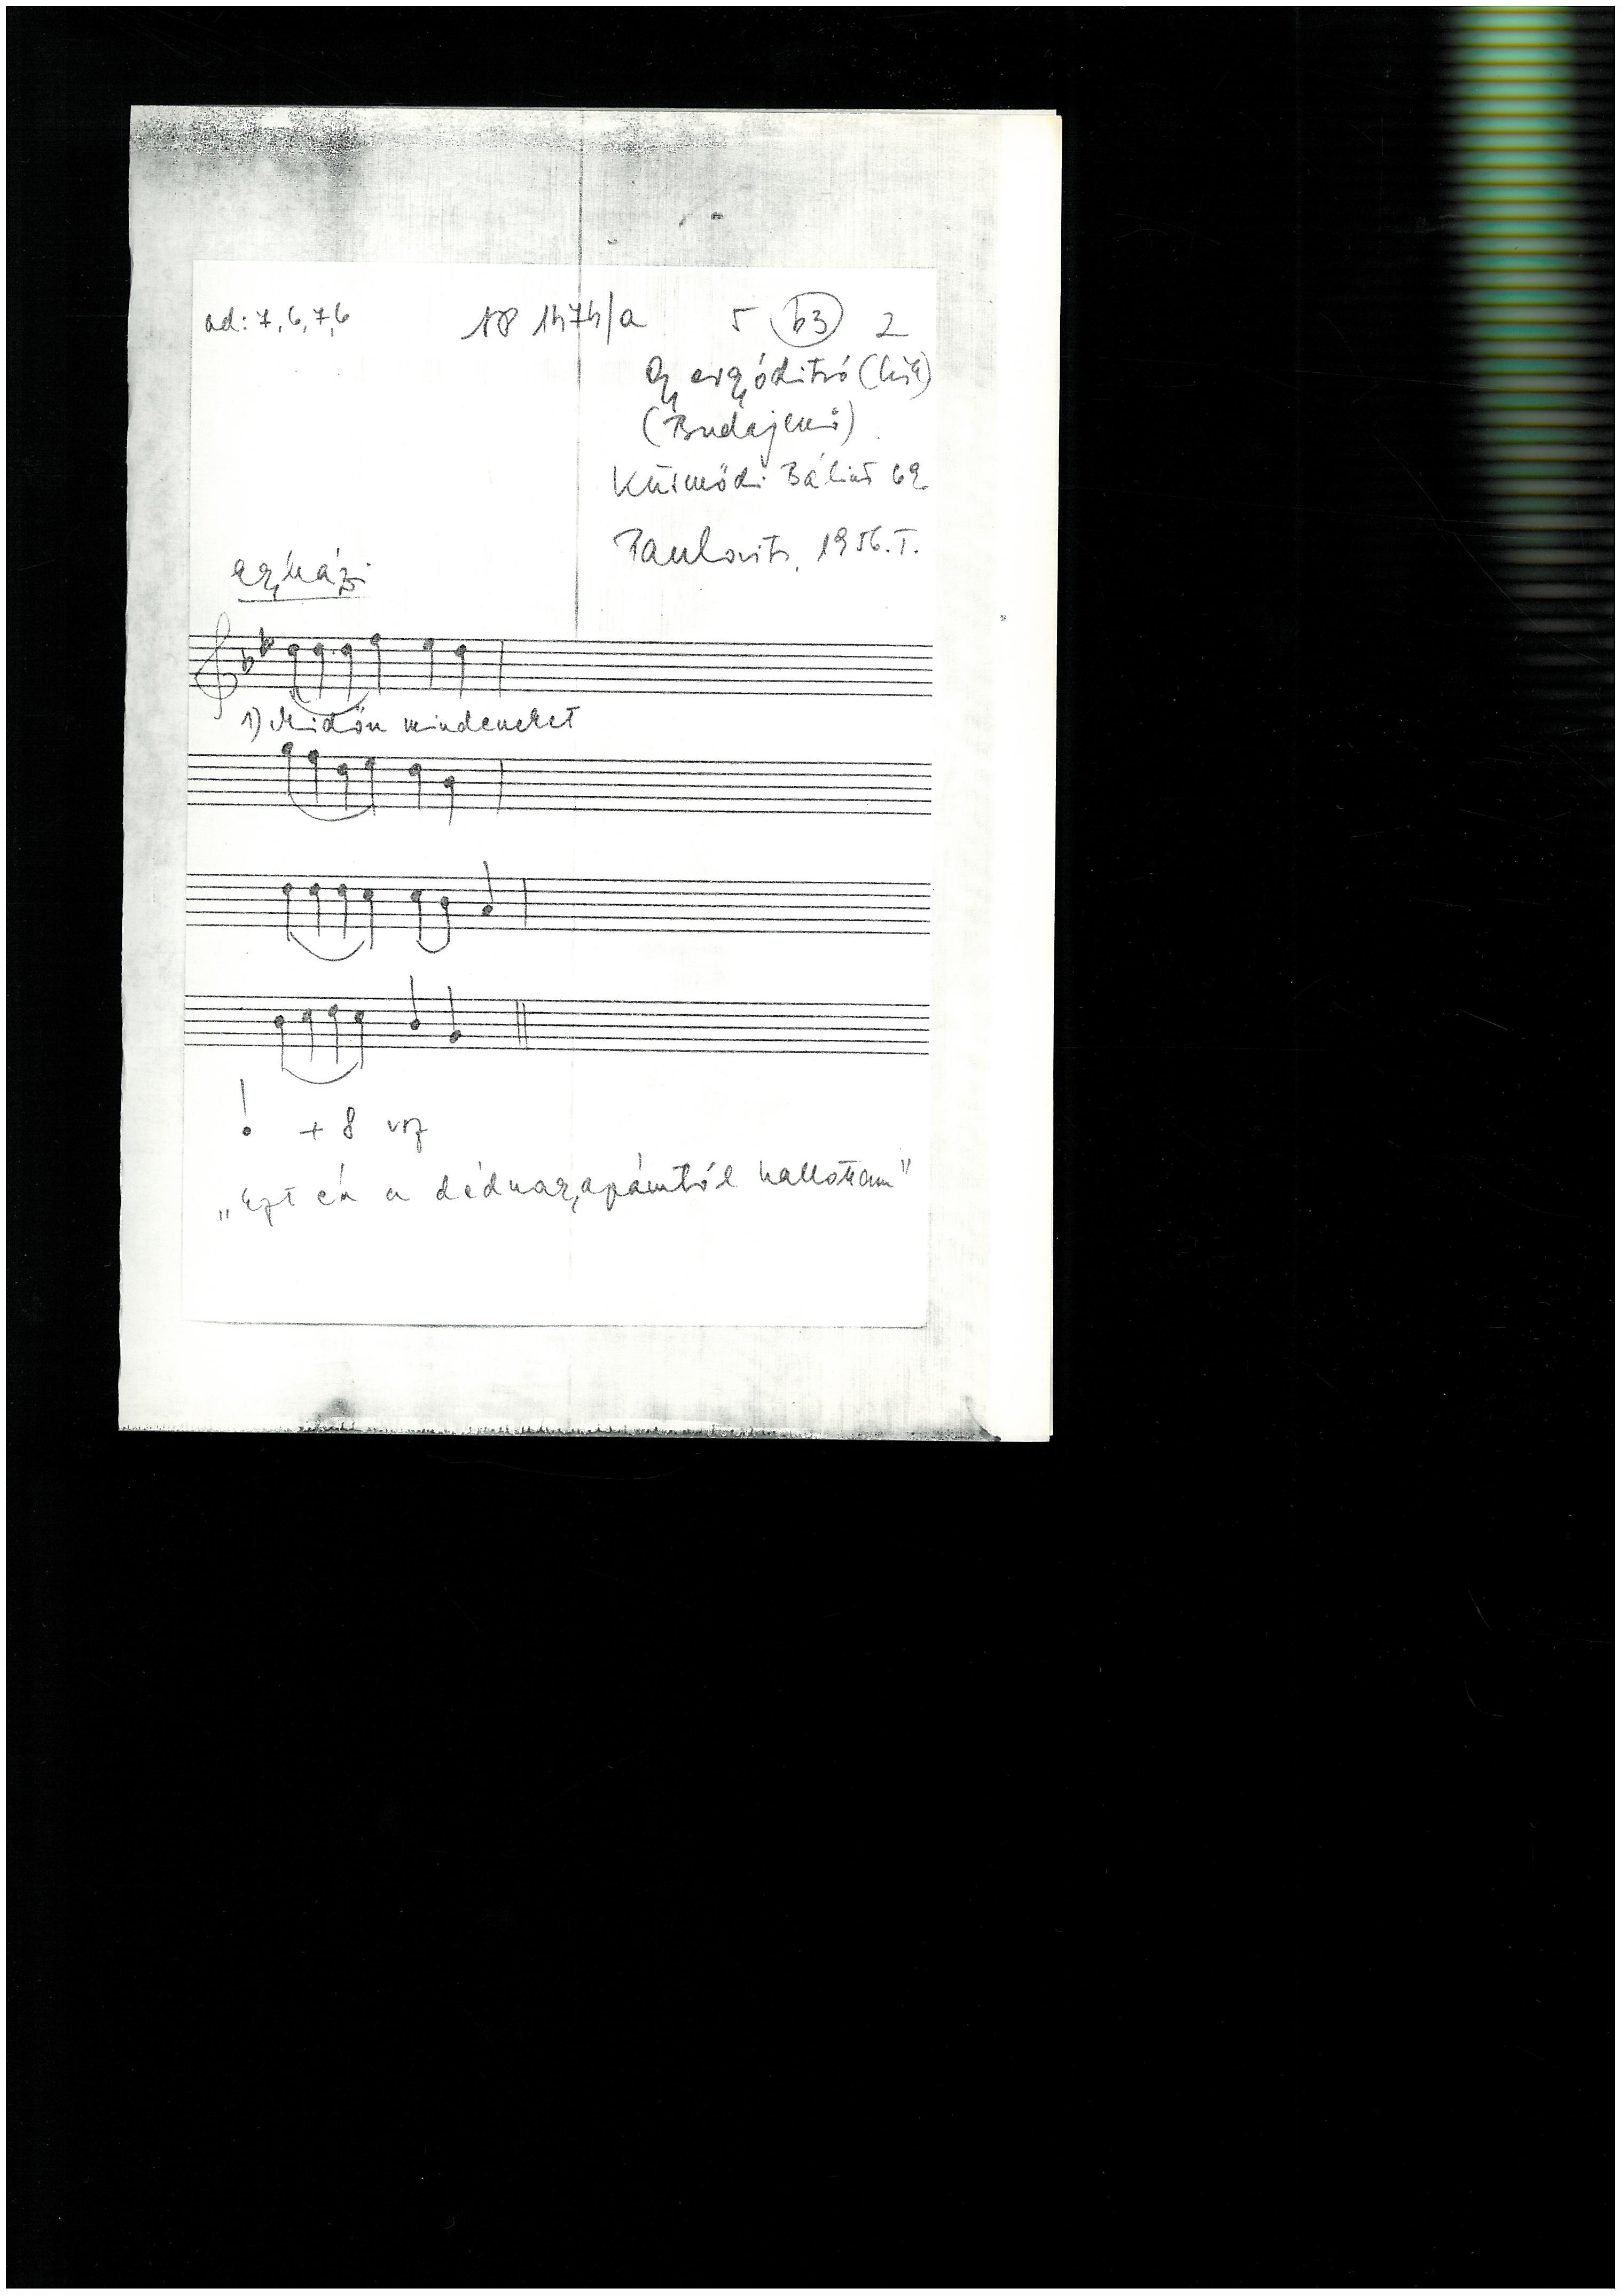 ad: 7, 6, 7, 6
18 1474/a
5 b3 2
Gyergyóditró (Csík)
(Budajenő)
Bálint 69
Paulovits, 1956. I.
egyházi
1) Midőn mindeneket
! + 8 vsz
„Ezt én a dédnagyapámtól hallottam"